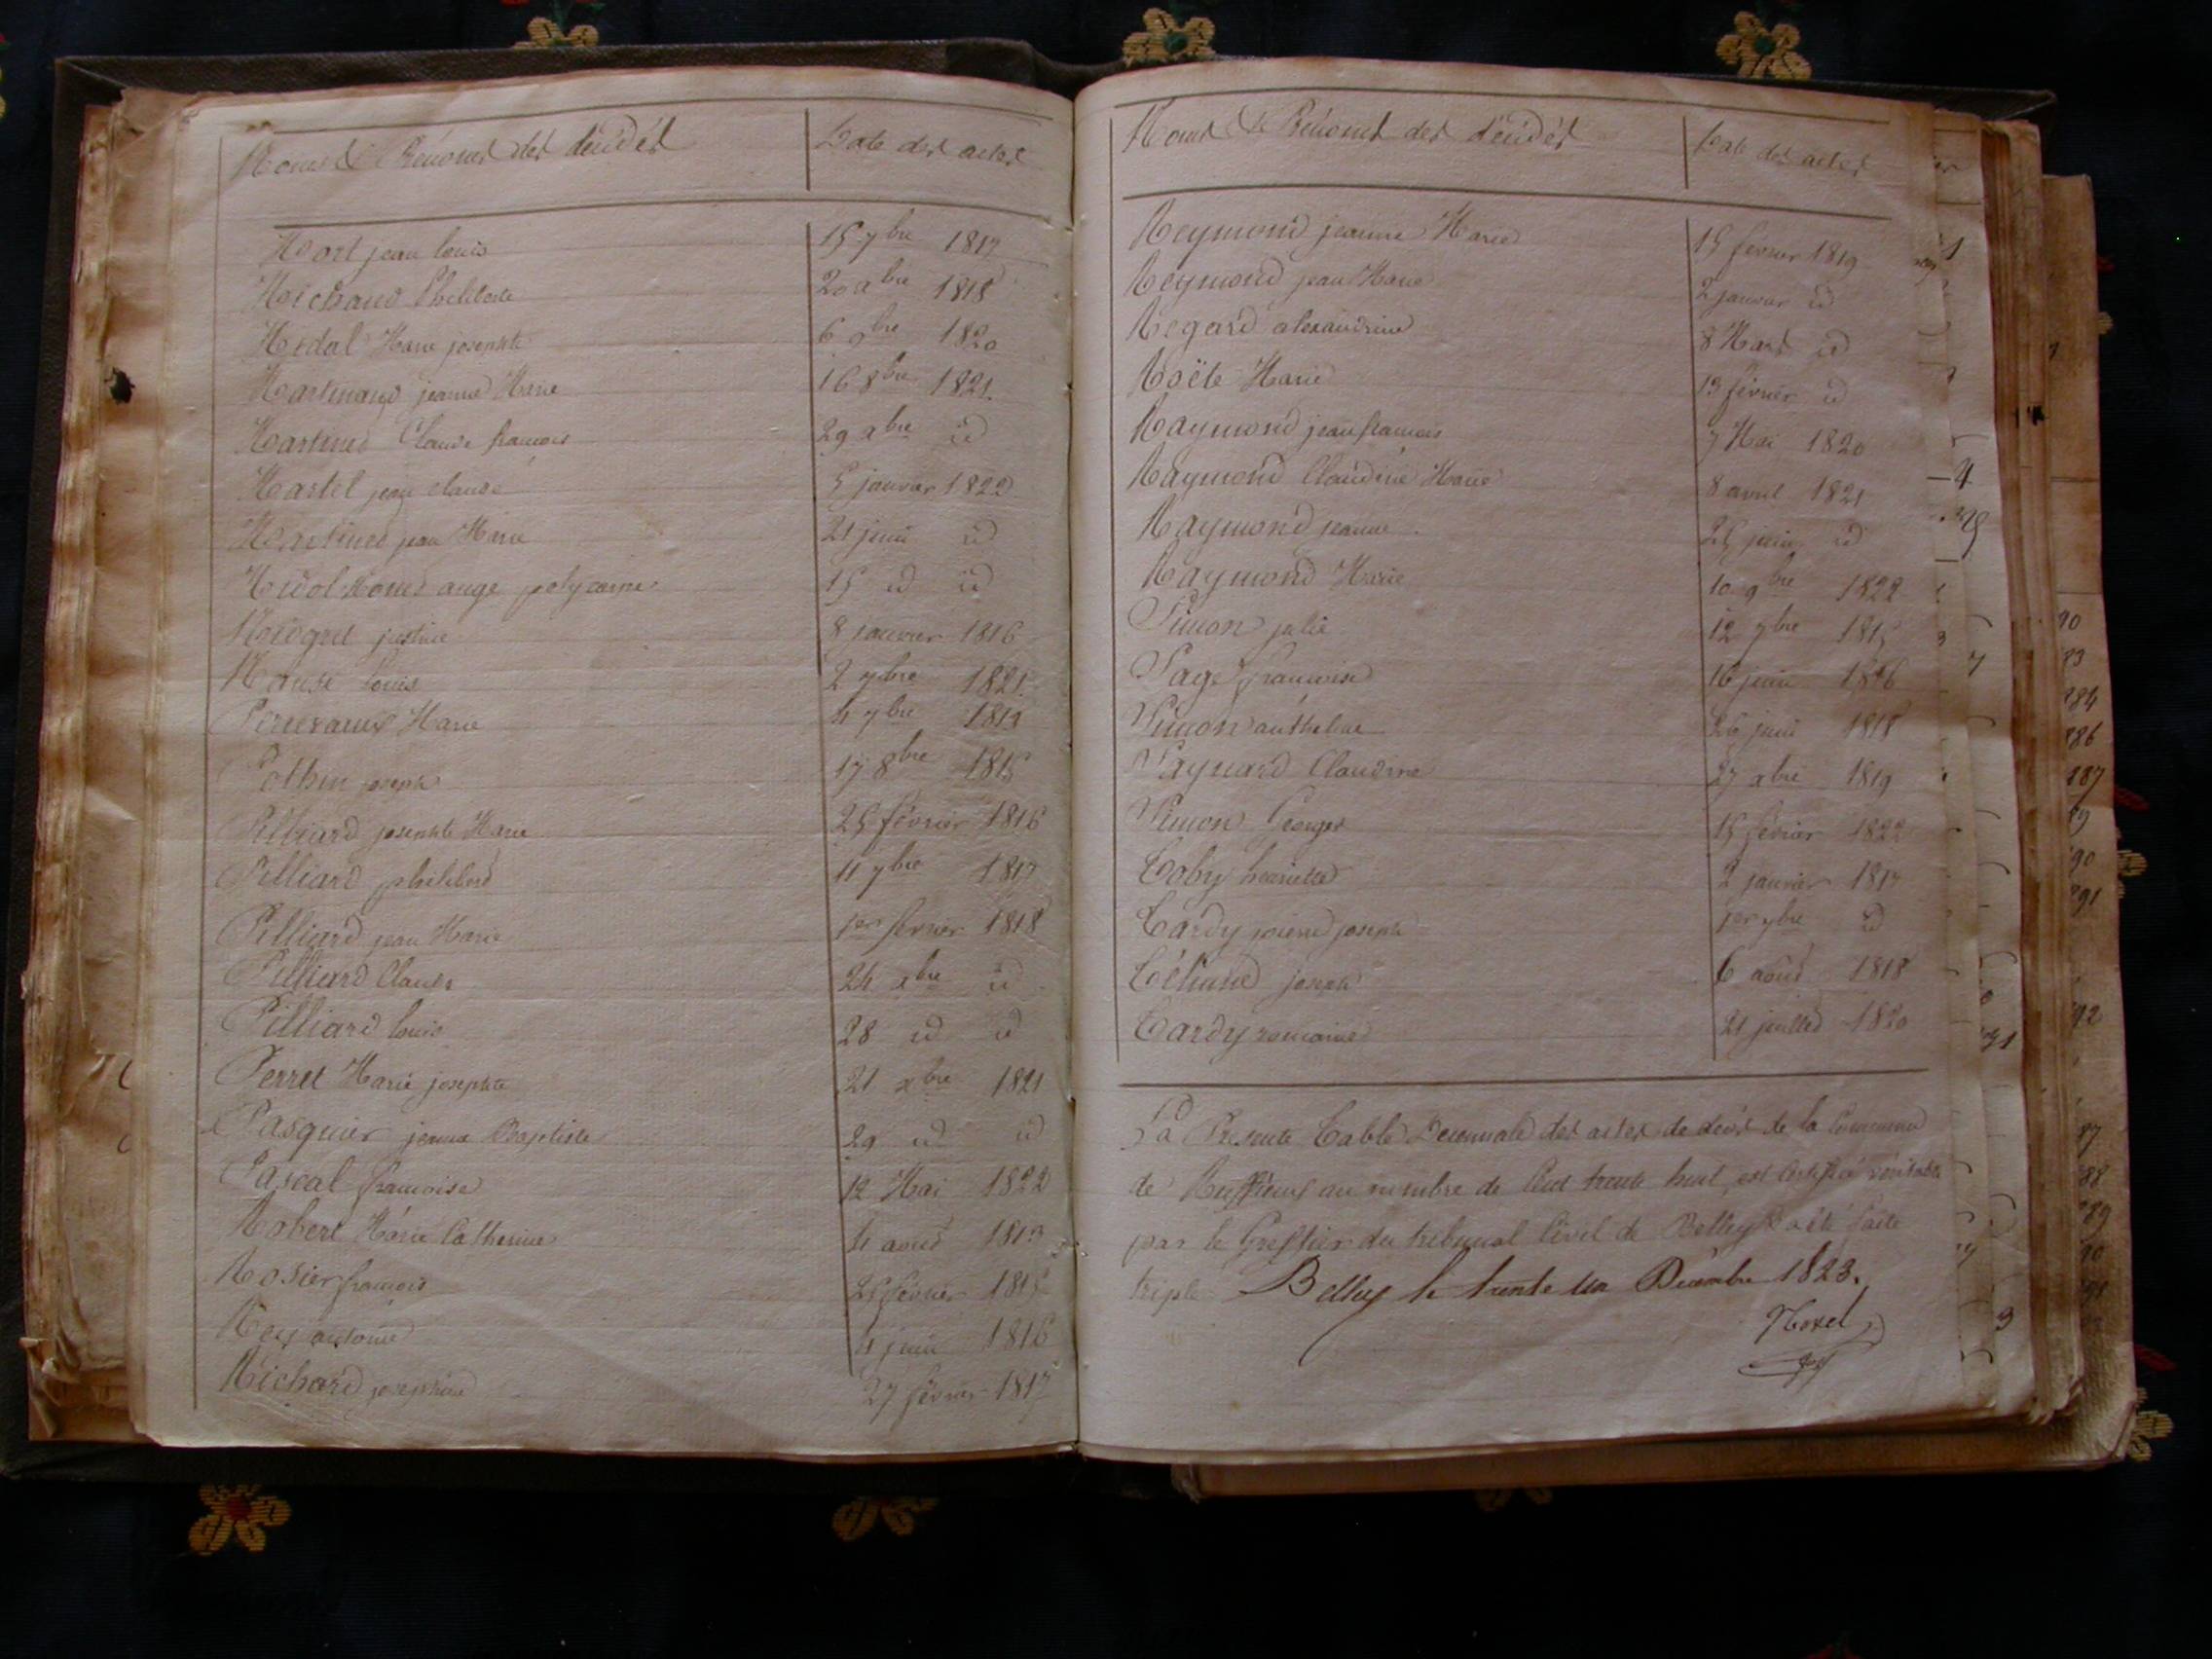 Noms & Prénoms des décédés Date des actes
Mort jean louis 15 7bre 1817
Michaud Philiberte 20 xbre 1818
Midal Marie josephte 6 9bre 1820
Martinand jeanne Marie 16 8bre 1821.
Martined Claude francois 29 xbre id
Martel jean claude 5 janvier 1822
Martined jean Marie 21 juin id
Midol Moned ange polycarpe 15 id id
justine 8 janvier 1816
louis 2 7bre 1821.
Marie 4 7bre 1814
Pothin joseph 17 8bre 1815
Pilliard josephte Marie 25 février 1816
Pilliard philiberd 11 7bre 1817
Pilliard jean Marie 1er février 1818
Pilliard Claude 24 xbre id
Pilliard louis 28 id id
Perret Marie josephte 21 xbre 1821
Pasquier jeanne Baptiste 29 id id
Pascal francoise 12 Mai 1822
Robert Marie Catherine 4 aoud 1813
Rosier francois 25 février 1815
Rey antoine 4 juin 1816
Richard josephine 27 février 1817
Noms & Prénoms des décédés Date des actes
Reymond jeanne Marie 15 fevrier 1819
Reymond jean Marie 2 janvier id
Regard alexandrine 8 Mars id
Roëte Marie 13 février id
Raymond jean francois 7 Mai 1820
Raymond Claudine Marie 8 avril 1821
Raymond jeanne 25 juin id
Raymond Marie 10 9bre 1822
Simon julie 12 7bre 1815
Sage francoise 16 juin 1816
Simon anthelme 26 juin 1818
Saynard Claudine 27 xbre 1819
Simon Georges 15 février 1822
Toby henriette 2 janvier 1817
Tardy pierre joseph 1er 7bre id
joseph 6 aoud 1818
Tardy romaine 21 juilled 1820
La Présente Table Décennale des actes de décès de la Commune
de Ruffieux au nombre de Cent trente huit, est Certifiée véritable
par le Greffier du tribunal Civil de Belley & a été faite
triple. Belley le trente un Décembre 1823.
Morel